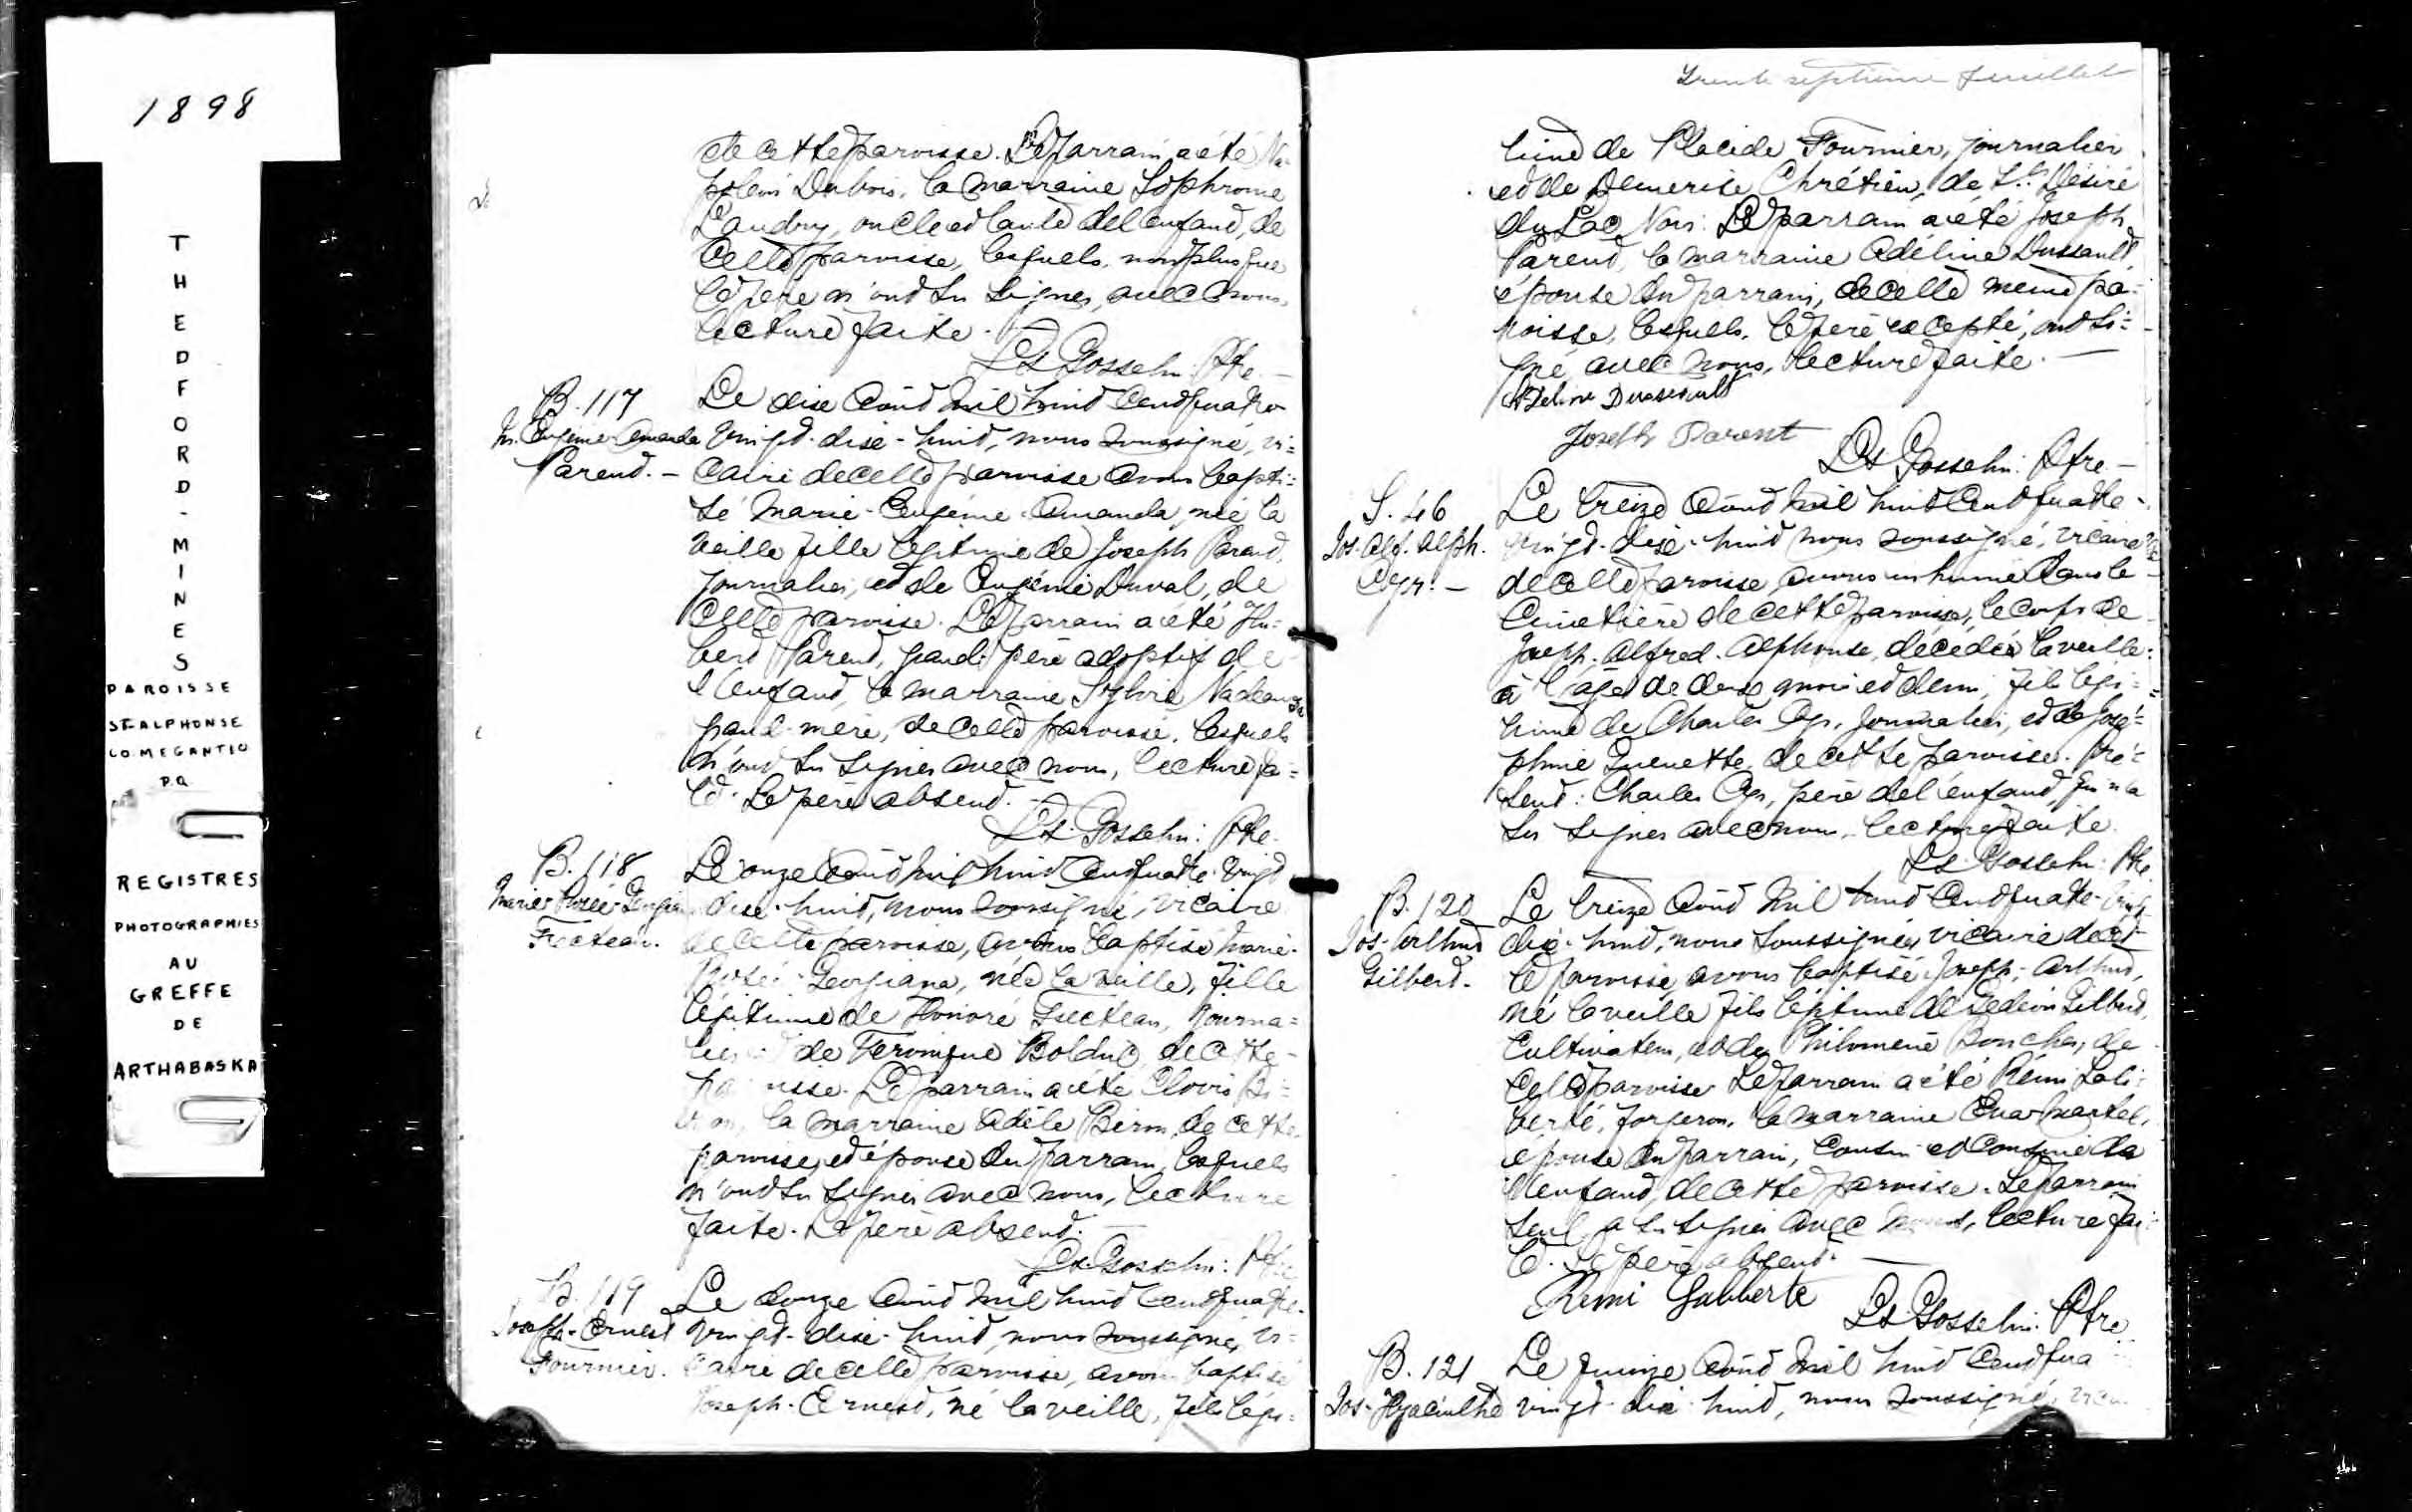 1898
THEDFORD-MINES
PAROISSE
ST-ALPHONSE
CO. MEGANTIC
P.Q.
REGISTRES
PHOTOGRAPHIES
AU
GREFFE
DE
ARTHABASKA
de cette paroisse. Le parrain a été Na-
poléon Dubois, la marraine Sophronie
Landry, oncle et tante de l'enfant, de
cette paroisse, lesquels, non plus que
le père n'ont su signer avec nous,
lecture faite.
Ls. Gosselin: Ptre.
B. 117
M. Eugénie Amanda
Parent. —
Le dix Août mil huit cent quatre
vingt-dix-huit, nous soussigné, vi=
caire de cette paroisse avons bapti=
sé Marie-Eugénie-Amanda, née la
veille fille légitime de Joseph Parent,
journalier, et de Eugénie Duval, de
cette paroisse. Le parrain a été Hu=
bert Parent, grand-père adoptif de
l'enfant, la marraine Sylvie Nadeau sa
grand-mère, de cette paroisse, lesquels
n'ont su signer avec nous, lecture fai=
te. Le père absent. —
Ls. Gosselin: Ptre.
B. 118
Marie Rosée Georgiana
Fecteau.
Le onze Août mil huit cent quatre-vingt
dix-huit, nous soussigné, vicaire
de cette paroisse, avons baptisé Marie-
Rosée-Georgiana, née la veille, fille
légitime de Honoré Fecteau, journa=
lier et de Véronique Bolduc, de cette
paroisse. Le parrain a été Clovis Bi=
ron, la marraine Adèle Biron, de cette
paroisse, et épouse du parrain, lesquels
n'ont su signer avec nous, lecture
faite. Le père absent. —
Ls. Gosselin: Ptre
B. 119
Joseph-Ernest
Fournier.
Le douze Août mil huit cent quatre-
vingt-dix-huit, nous soussigné, vi=
caire de cette paroisse, avons baptisé
Joseph-Ernest, né la veille, fils légi=
Trente septième feuillet
time de Placide Fournier, journalier
et de Demerise Chrétien, de St. Désiré
du Lac Noir. Le parrain a été Joseph
Parent, la marraine Adéline Dussault,
épouse du parrain, de cette même pa=
roisse, lesquels, le père excepté, ont si=
gné avec nous, lecture faite. —
Adeline Dussault
Joseph Parent
Ls. Gosselin: Ptre —
S. 46
Jos. Alf. Alph.
Cyr. —
Le treize Août mil huit cent quatre-
vingt-dix-huit nous soussigné, vicaire
de cette paroisse, avons inhumé dans le
cimetière de cette paroisse, le corps de
Joseph-Alfred-Alphonse, décédé la veille
à l'âge de deux mois et demi, fils légi=
time de Charles Cyr, journalier, et de José=
phine Quenette, de cette paroisse. Pré=
sent: Charles Cyr, père de l'enfant, qui n'a
su signer avec nous, lecture faite.
Ls. Gosselin: Ptre.
B. 120
Jos-Arthur
Gilbert.
Le treize Août mil huit cent quatre-vingt-
dix-huit, nous soussigné, vicaire de cet=
te paroisse avons baptisé Joseph-Arthur,
né la veille fils légitime de Gédéon Gilbert,
cultivateur, et de Philomène Boucher, de
cette paroisse. Le parrain a été Rémi Lali=
berté, forgeron, la marraine Eva Martel,
épouse du parrain, cousin et cousine de
l'enfant, de cette paroisse. Le parrain
seul a su signer avec nous, lecture fai=
te. Le père absent. —
Remi Laliberte
Ls. Gosselin: Ptre
B. 121
Jos-Hyacinthe
Le quinze Août mil huit cent qua
vingt-dix-huit, nous soussigné, vicai